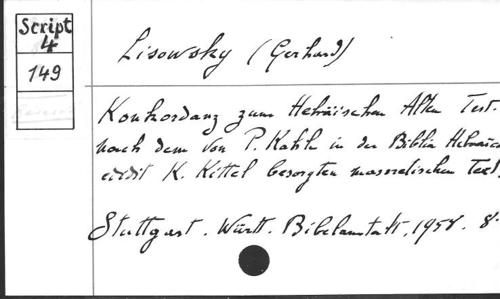 Script
4
149
Lisowsky (Gerhard)
Konkordanz zum Hebräischen Alten Test.
nach dem von P. Kahle in der Biblia Hebraica
edidit R. Kittel besorgten masoretischen Text.
Stuttgart. Württ. Bibelanstalt, 1958. 8°